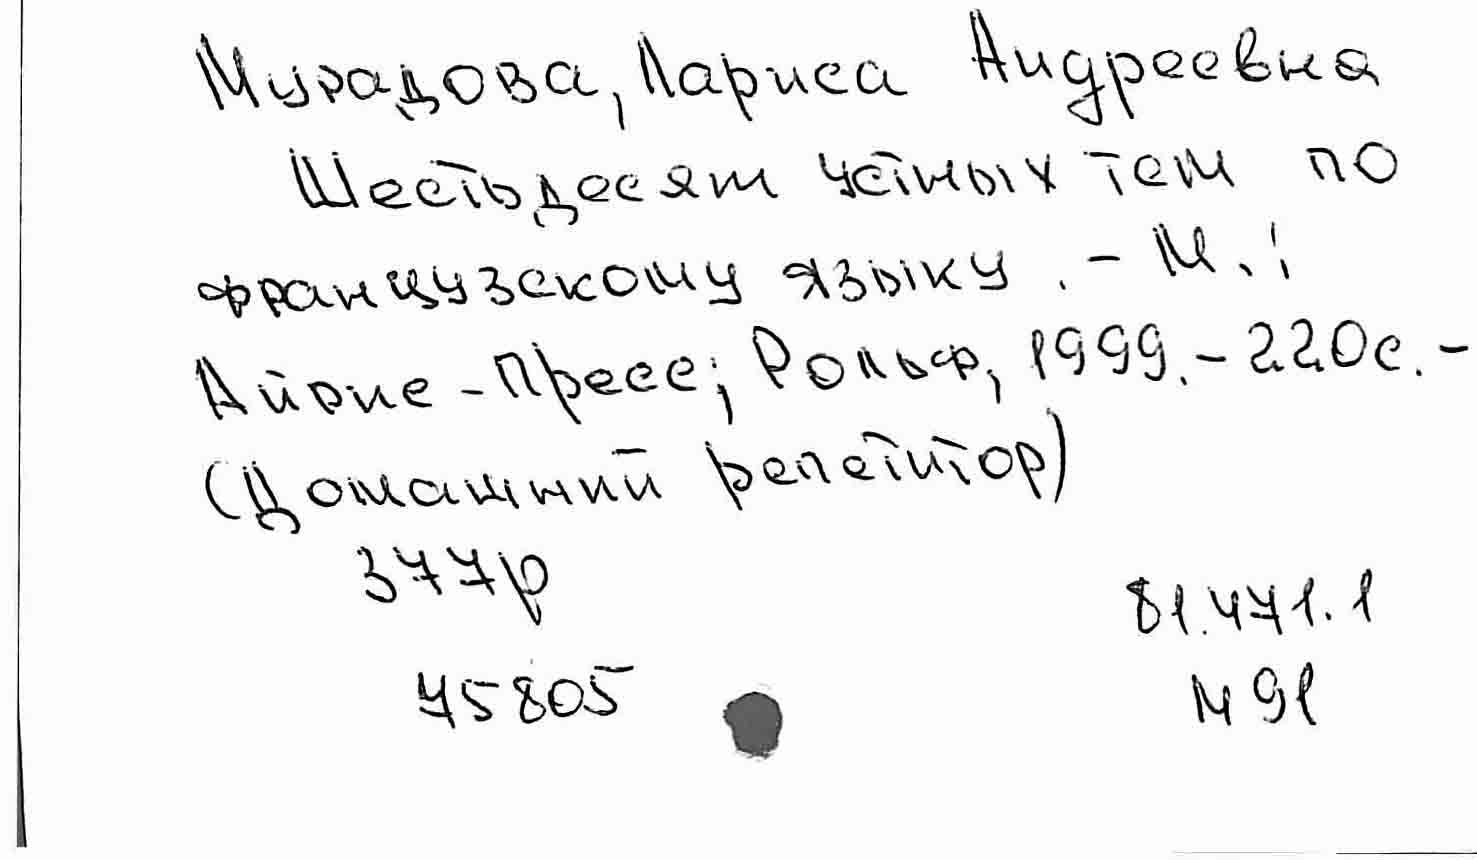 Мурадова, Лариса Андреевна
Шестьдесят устных тем по
французскому языку. - М.:
Айрис-Пресс; Рольф, 1999. - 220с. -
(Домашний репетитор)
377р
81.471.1
75805
М 91